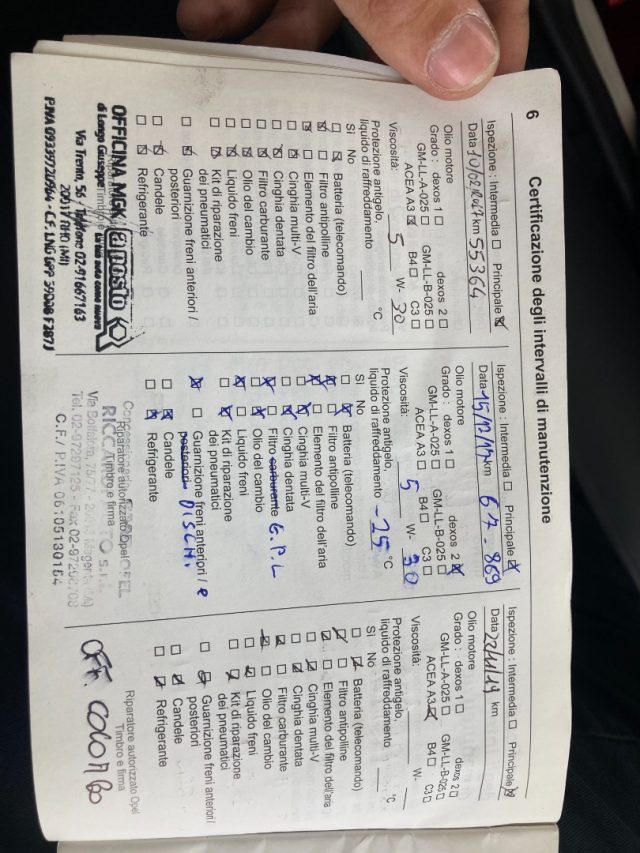 6
Certificazione degli intervalli di manutenzione
Ispezione : Intermedia ☐ Principale ☒
Data 10/02/2017 km 55364
Olio motore
Grado : dexos 1 ☐ dexos 2 ☐
GM-LL-A-025 ☐ GM-LL-B-025 ☐
ACEA A3 ☒ B4 ☐ C3 ☐
Viscosità: 5 W- 30
Protezione antigelo,
liquido di raffreddamento °C
Sì No
☐ ☒ Batteria (telecomando)
☒ ☐ Filtro antipolline
☒ ☐ Elemento del filtro dell'aria
☐ ☒ Cinghia multi-V
☐ ☒ Cinghia dentata
☐ ☒ Filtro carburante
☐ ☒ Olio del cambio
☐ ☒ Liquido freni
☐ ☒ Kit di riparazione
dei pneumatici
☐ ☒ Guarnizione freni anteriori /
posteriori
☐ ☒ Candele
☐ ☒ Refrigerante
OFFICINA MGK a posto
di Longo Giuseppe
Via Trento, 56 - Telefono 02-91667163
20017 RHO (MI)
Ispezione : Intermedia ☐ Principale ☒
Data 15/12/17 km 67-869
Olio motore
Grado : dexos 1 ☐ dexos 2 ☒
GM-LL-A-025 ☐ GM-LL-B-025 ☐
ACEA A3 ☐ B4 ☐ C3 ☐
Viscosità: 5 W- 30
Protezione antigelo,
liquido di raffreddamento -25 °C
Sì No
☐ ☒ Batteria (telecomando)
☒ ☐ Filtro antipolline
☒ ☐ Elemento del filtro dell'aria
☐ ☒ Cinghia multi-V
☐ ☒ Cinghia dentata
☒ ☐ Filtro carburante G.P.L
☐ ☒ Olio del cambio
☒ ☐ Liquido freni
☐ ☒ Kit di riparazione
dei pneumatici
☒ ☐ Guarnizione freni anteriori / e
posteriori DISCHI.
☐ ☒ Candele
☐ ☒ Refrigerante
Riparatore autorizzato Opel
Timbro e firma
C.F./ P.IVA 06105130154
Ispezione : Intermedia ☐ Principale ☒
Data 22/11/19 km
Olio motore
Grado : dexos 1 ☐ dexos 2 ☐
GM-LL-A-025 ☐ GM-LL-B-025 ☐
ACEA A3 ☒ B4 ☐ C3 ☐
Viscosità: W-
Protezione antigelo,
liquido di raffreddamento °C
Sì No
☐ ☒ Batteria (telecomando)
☒ ☐ Filtro antipolline
☒ ☐ Elemento del filtro dell'aria
☐ ☒ Cinghia multi-V
☐ ☒ Cinghia dentata
☒ ☐ Filtro carburante
☒ ☐ Olio del cambio
☐ ☒ Liquido freni
☐ ☒ Kit di riparazione
dei pneumatici
☐ ☒ Guarnizione freni anteriori /
posteriori
☐ ☒ Candele
☐ ☒ Refrigerante
Riparatore autorizzato Opel
Timbro e firma
OFF. COLOMBO